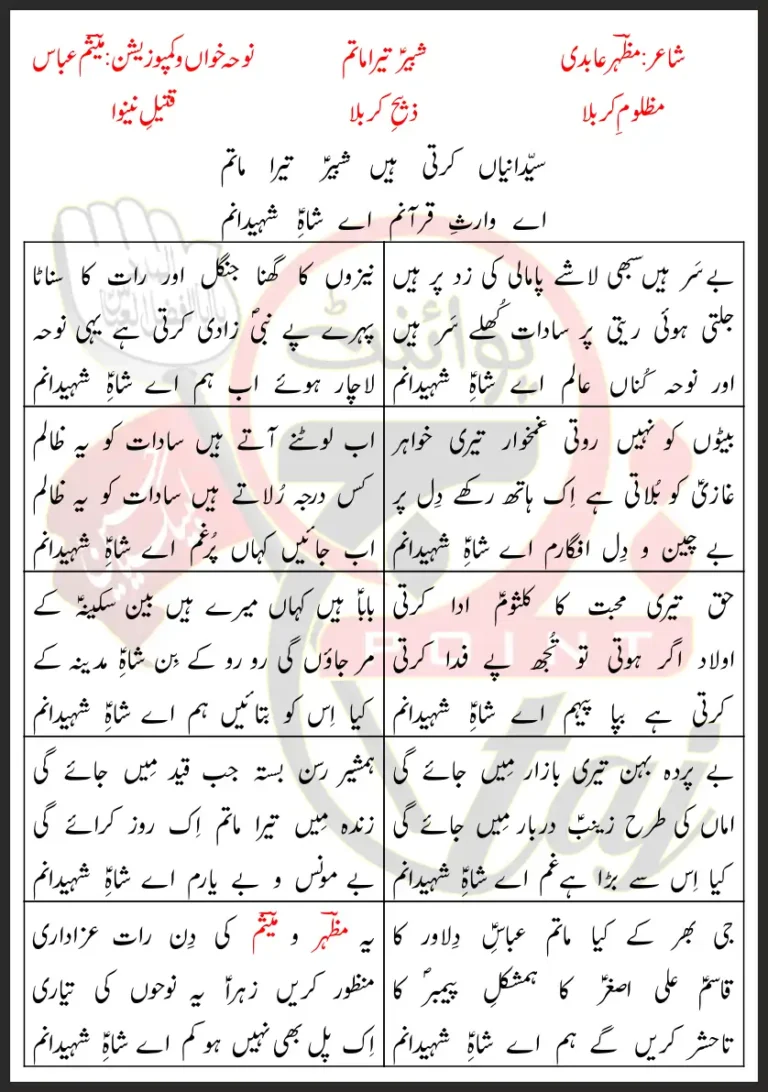 شاعر: مظہر عابدی شبیرؑ تیرا ماتم نوحہ خواں و کمپوزیشن: میثم عباس
مظلومِ کربلا ذبیحِ کربلا قتیلِ نینوا
سیّدانیاں کرتی ہیں شبیرؑ تیرا ماتم
اے وارثِ قرآنم اے شاہِؑ شہیدانم
بے سَر ہیں سبھی لاشے پامالی کی زد پر ہیں
جلتی ہوئی ریتی پر سادات کُھلے سَر ہیں
اور نوحہ کُناں عالم اے شاہِؑ شہیدانم
نیزوں کا گھنا جنگل اور رات کا سناٹا
پہرے پے نبیؐ زادی کرتی ہے یہی نوحہ
لاچار ہوئے اب ہم اے شاہِؑ شہیدانم
بیٹوں کو نہیں روتی غمخوار تیری خواہر
غازیؑ کو بُلاتی ہے اِک ہاتھ رکھے دِل پر
بے چین و دِل افگارم اے شاہِؑ شہیدانم
اب لوٹنے آتے ہیں سادات کو یہ ظالم
کس درجہ رُلاتے ہیں سادات کو یہ ظالم
اب جائیں کہاں پُرغم اے شاہِؑ شہیدانم
حق تیری محبت کا کلثومؑ ادا کرتی
اولاد اگر ہوتی تو تُجھ پے فدا کرتی
کرتی ہے بپا پیہم اے شاہِؑ شہیدانم
باباؑ ہیں کہاں میرے ہیں بین سکینہؑ کے
مر جاؤں گی رو رو کے بِن شاہِؑ مدینہ کے
کیا اِس کو بتائیں ہم اے شاہِؑ شہیدانم
بے پردہ بہن تیری بازار مِیں جائے گی
اماں کی طرح زینبؑ دربار مِیں جائے گی
کیا اِس سے بڑا ہے غم اے شاہِؑ شہیدانم
ہمشیر رسن بستہ جب قید مِیں جائے گی
زندہ مِیں تیرا ماتم اِک روز کرائے گی
بے مونس و بے یارم اے شاہِؑ شہیدانم
جی بھر کے کیا ماتم عباسِؑ دِلاور کا
قاسمؑ علی اصغرؑ کا ہمشکلِ پیمبرؐ کا
تا حشر کریں گے ہم اے شاہِؑ شہیدانم
یہ مظہر و میثم کی دِن رات عزاداری
منظور کریں زہراؑ یہ نوحوں کی تیاری
اِک پل بھی نہیں ہو کم اے شاہِؑ شہیدانم
پوائنٹ
POINT
taj